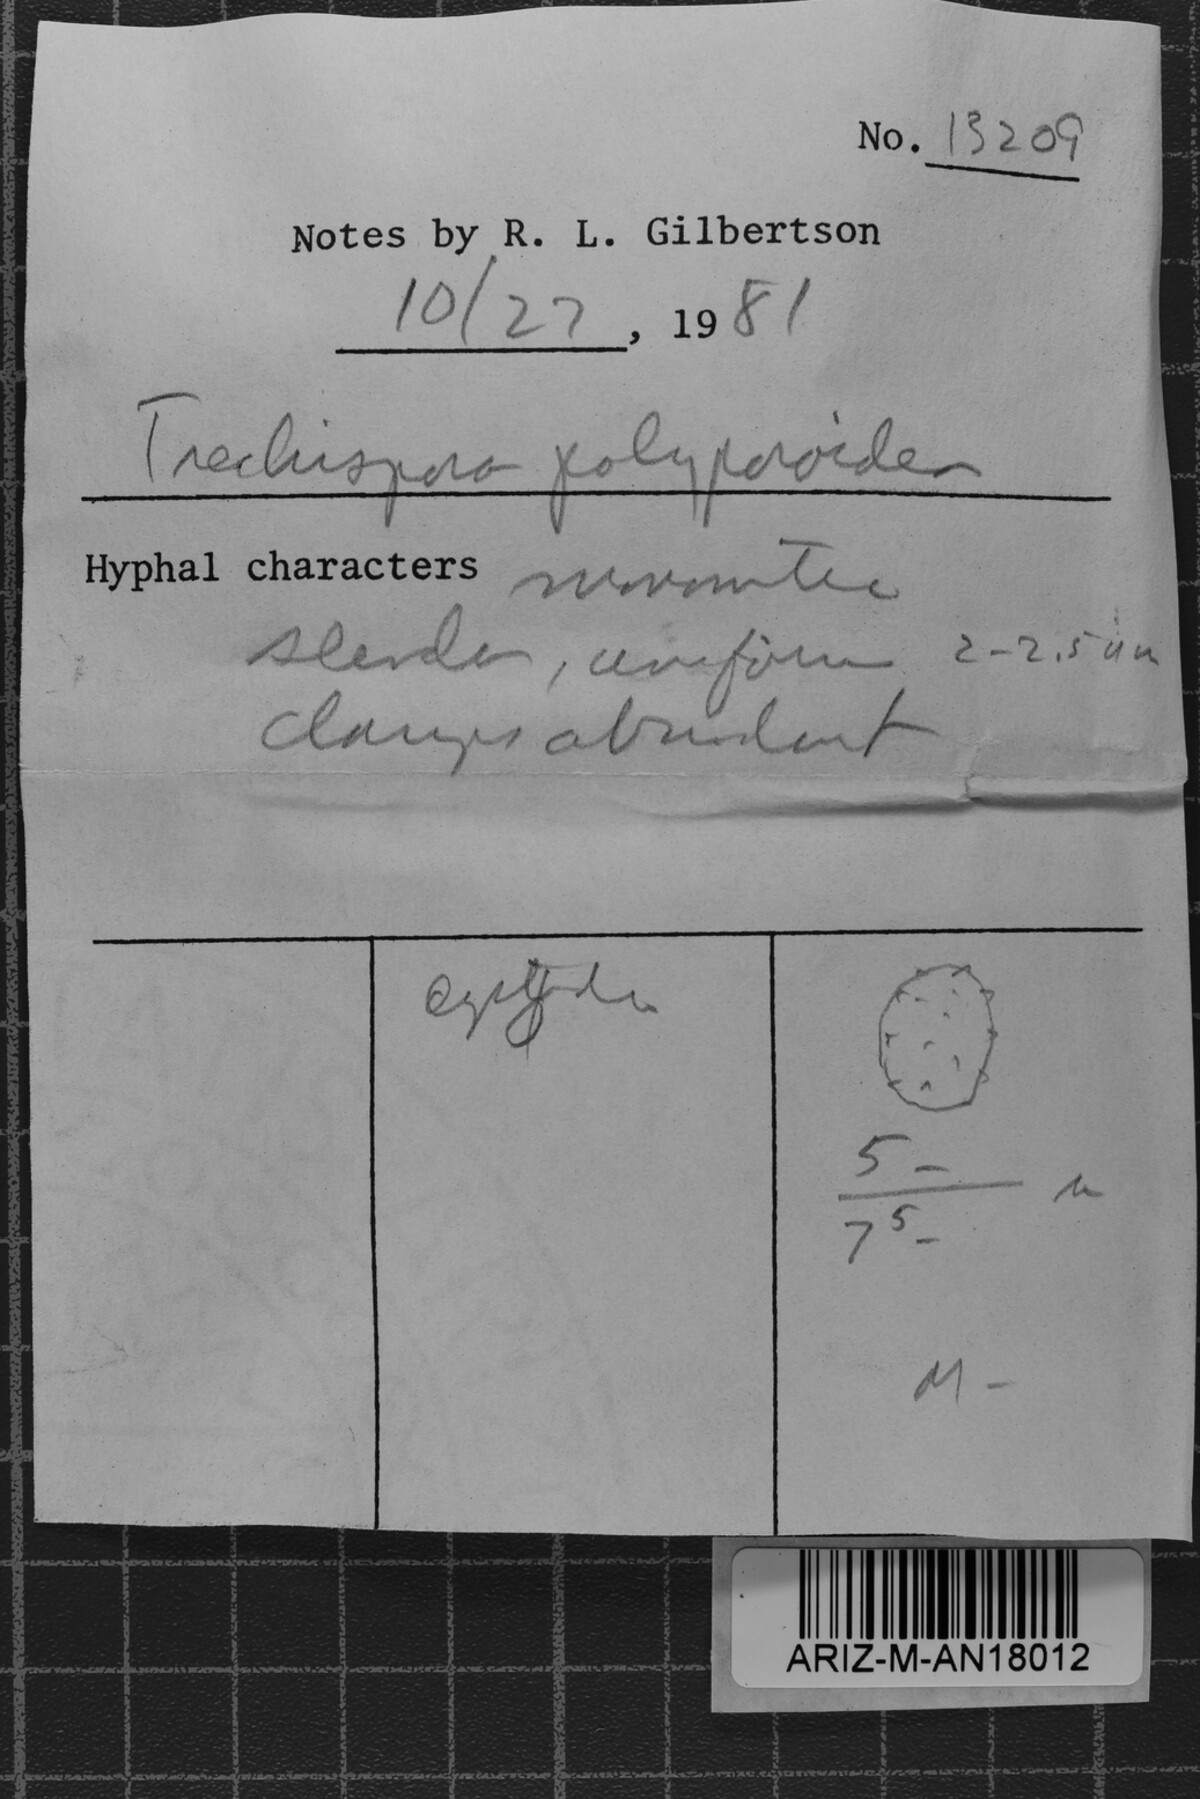 No. 13209
Notes by R. L. Gilbertson
10/27, 1981
Trechispora polyporoidea
Hyphal characters monomitic
slender, uniform 2-2.5 um
clamps abundant
5 -
7 5 - u
M -
ARIZ-M-AN18012